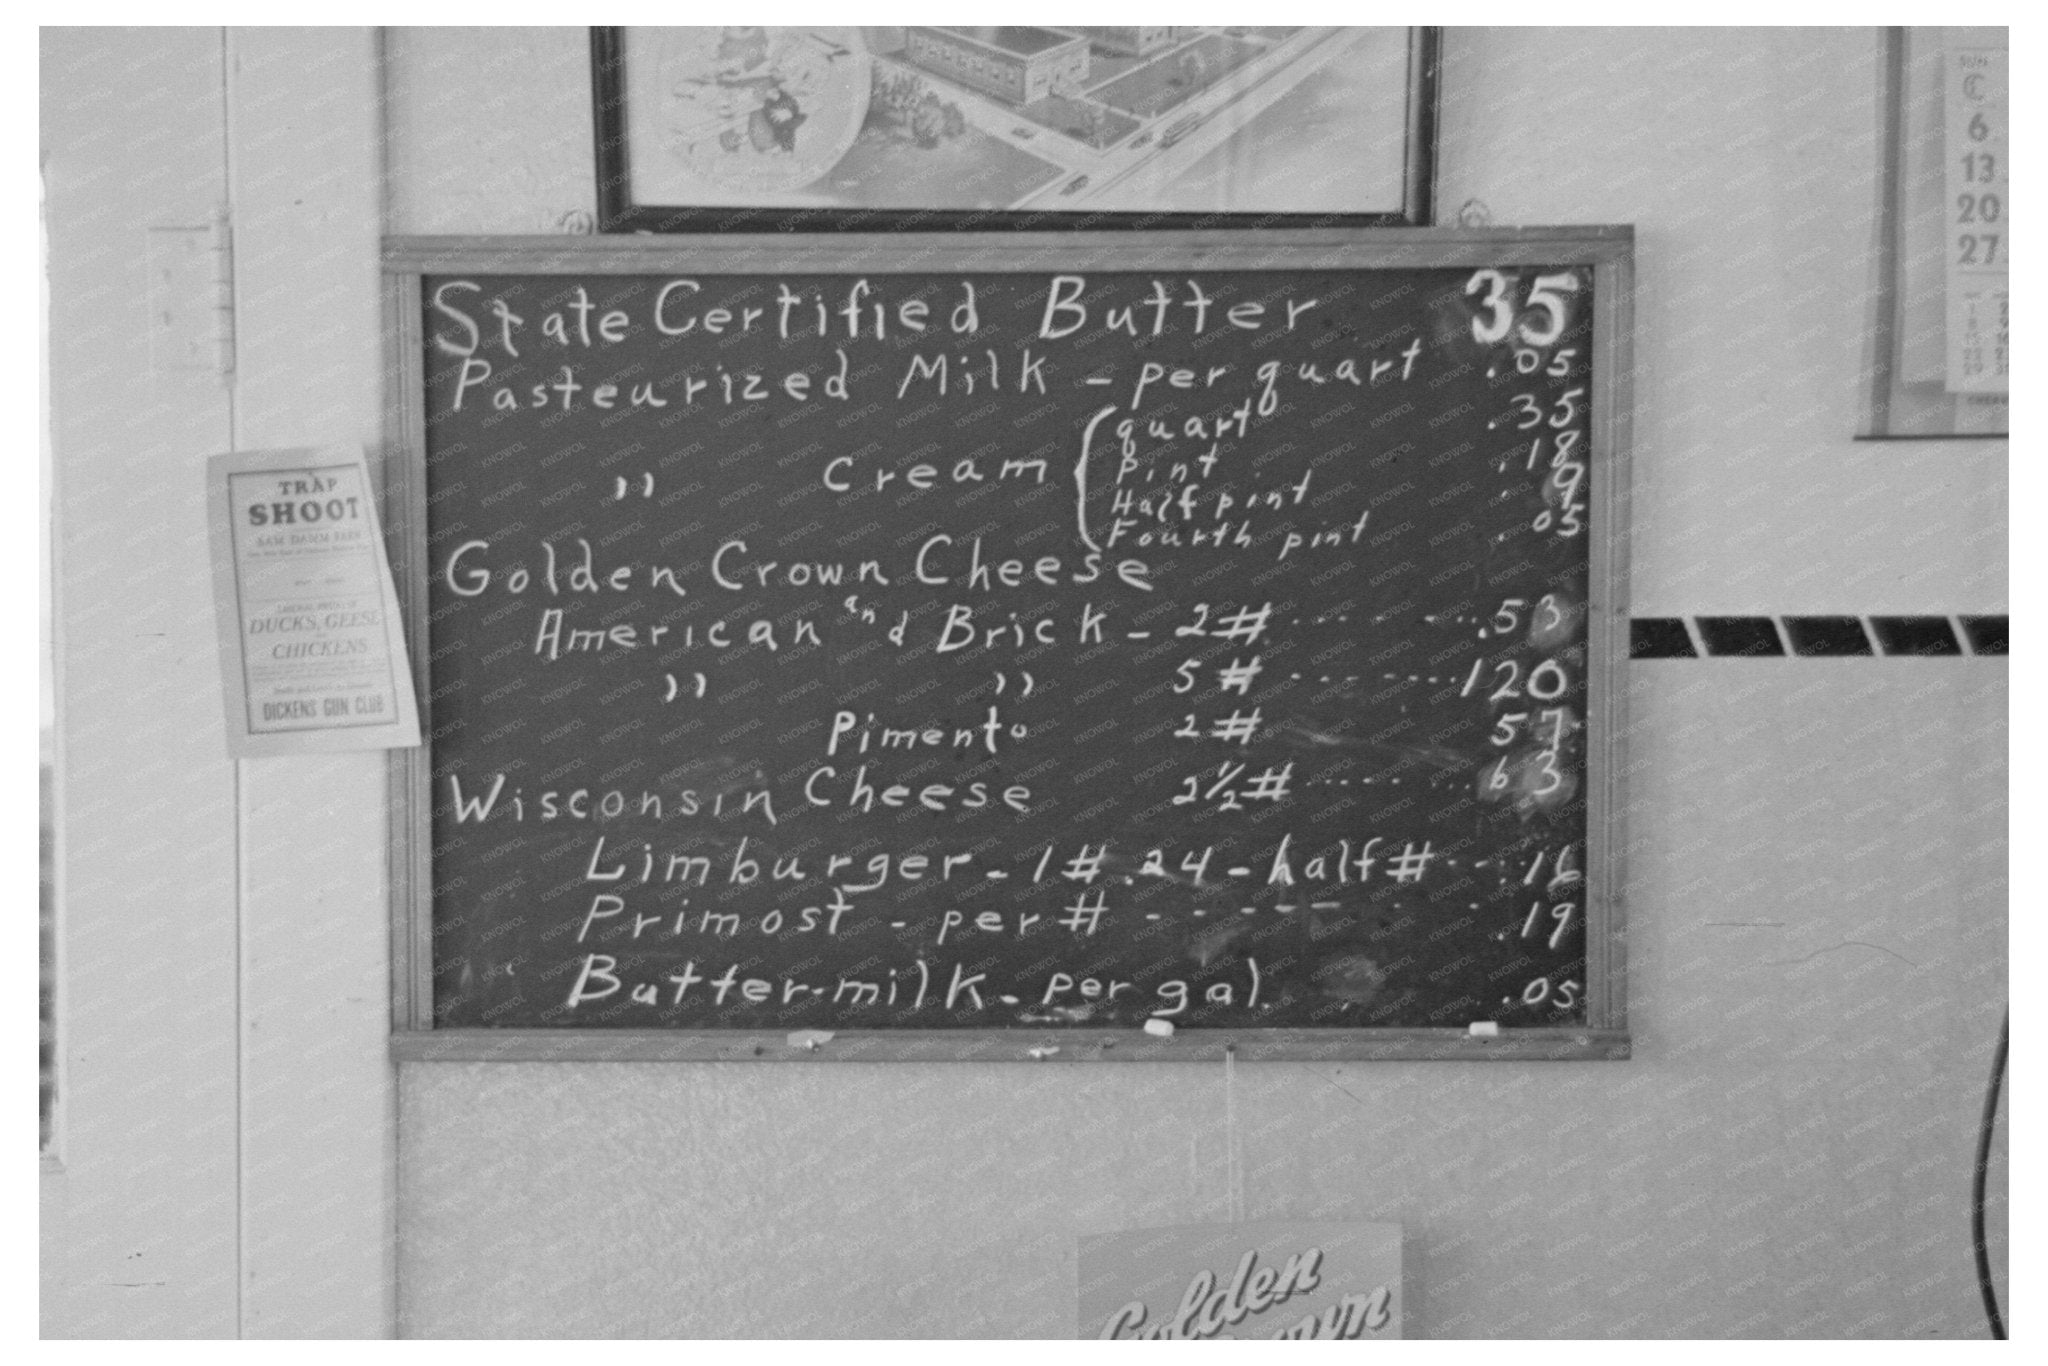 State Certified Butter 35
Pasteurized Milk - per quart .05
" Cream { quart .35
pint .18
Half pint . 9
Fourth pint . 05
Golden Crown Cheese
American and Brick - 2# ------- .53
" " 5# ------- 120
Pimento 2# 57
Wisconsin Cheese 2½# ------- 63
Limburger - 1# .24 - half# ---- .16
Primost - per# ------- .19
Butter-milk - per gal. .05
TRAP
SHOOT
SAM DAMM FARM
DUCKS, GEESE
CHICKENS
DICKENS GUN CLUB
SUN
6
13
20
27
Golden
KNOWOL